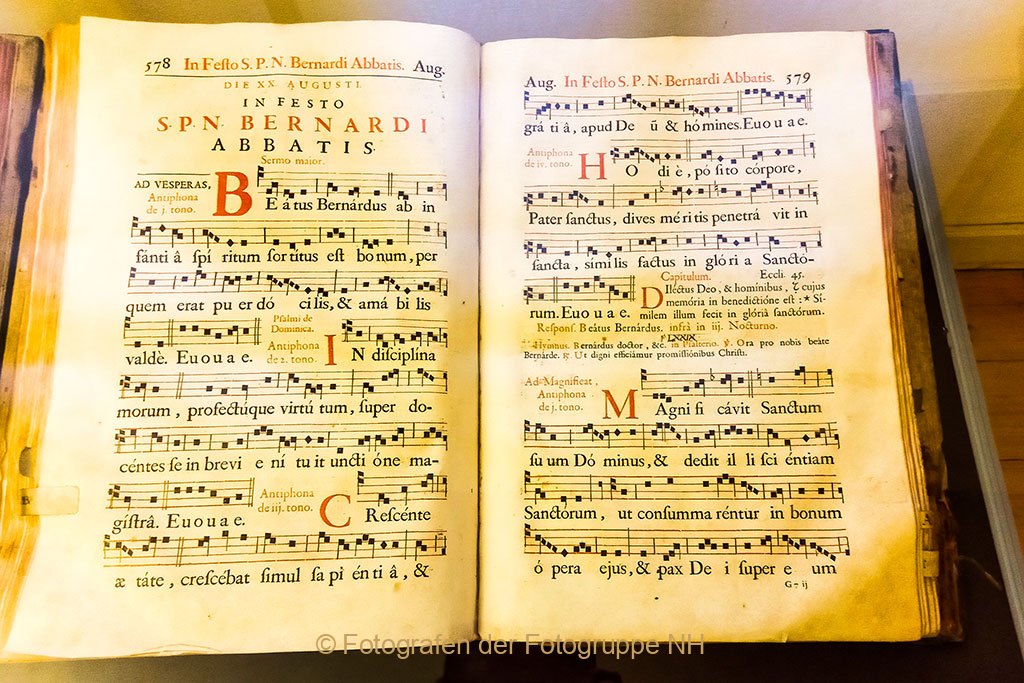 578 In Feſto S. P. N. Bernardi Abbatis. Aug.
DIE XX. AUGUSTI.
IN FESTO
S. P. N. BERNARDI
ABBATIS.
Sermo maior.
AD VESPERAS,
Antiphona
de j. tono.
BEátus Bernárdus ab in
fánti â ſpí ritum ſortítus eſt bonum, per
quem erat pu er dó ci lis, & amá bi lis
valdè. Euouae.
Pſalmi de
Dominica.
Antiphona
de 2. tono.
IN diſciplína
morum, profectúque virtú tum, ſuper do-
céntes ſe in brevi e ní tu it uncti óne ma-
gíſtrâ. Euouae.
Antiphona
de iij. tono.
CReſcénte
æ táte, creſcébat ſimul ſa pi én ti â, &
Aug. In Feſto S. P. N. Bernardi Abbatis. 579
grá ti â, apud De ũ & hómines. Euouae.
Antiphona
de iv. tono.
HO di è, pó ſi to córpore,
Pater ſanctus, dives mé ri tis penetrá vit in
ſancta, ſími lis factus in gló ri a Sanctó-
rum. Euouae.
Capitulum. Eccli. 45.
DIléctus Deo, & homínibus, cujus
memória in benedictióne eſt : * Sí-
milem illum fecit in glóriâ ſanctórum.
Reſponſ. Beátus Bernárdus. infrà in iij. Nocturno.
LXXIX
Hymnus. Bernárdus doctor, &c. in Pſalterio. ℣. Ora pro nobis beáte
Bernárde. ℟. Ut digni efficiámur promiſſiónibus Chriſti.
Ad Magnificat,
Antiphona
de j. tono.
MAgni fi cávit Sanctum
ſu um Dó minus, & dedit il li ſci éntiam
Sanctórum, ut conſumma réntur in bonum
ó pera ejus, & pax De i ſuper e um
G7 ij
© Fotografen der Fotogruppe NH